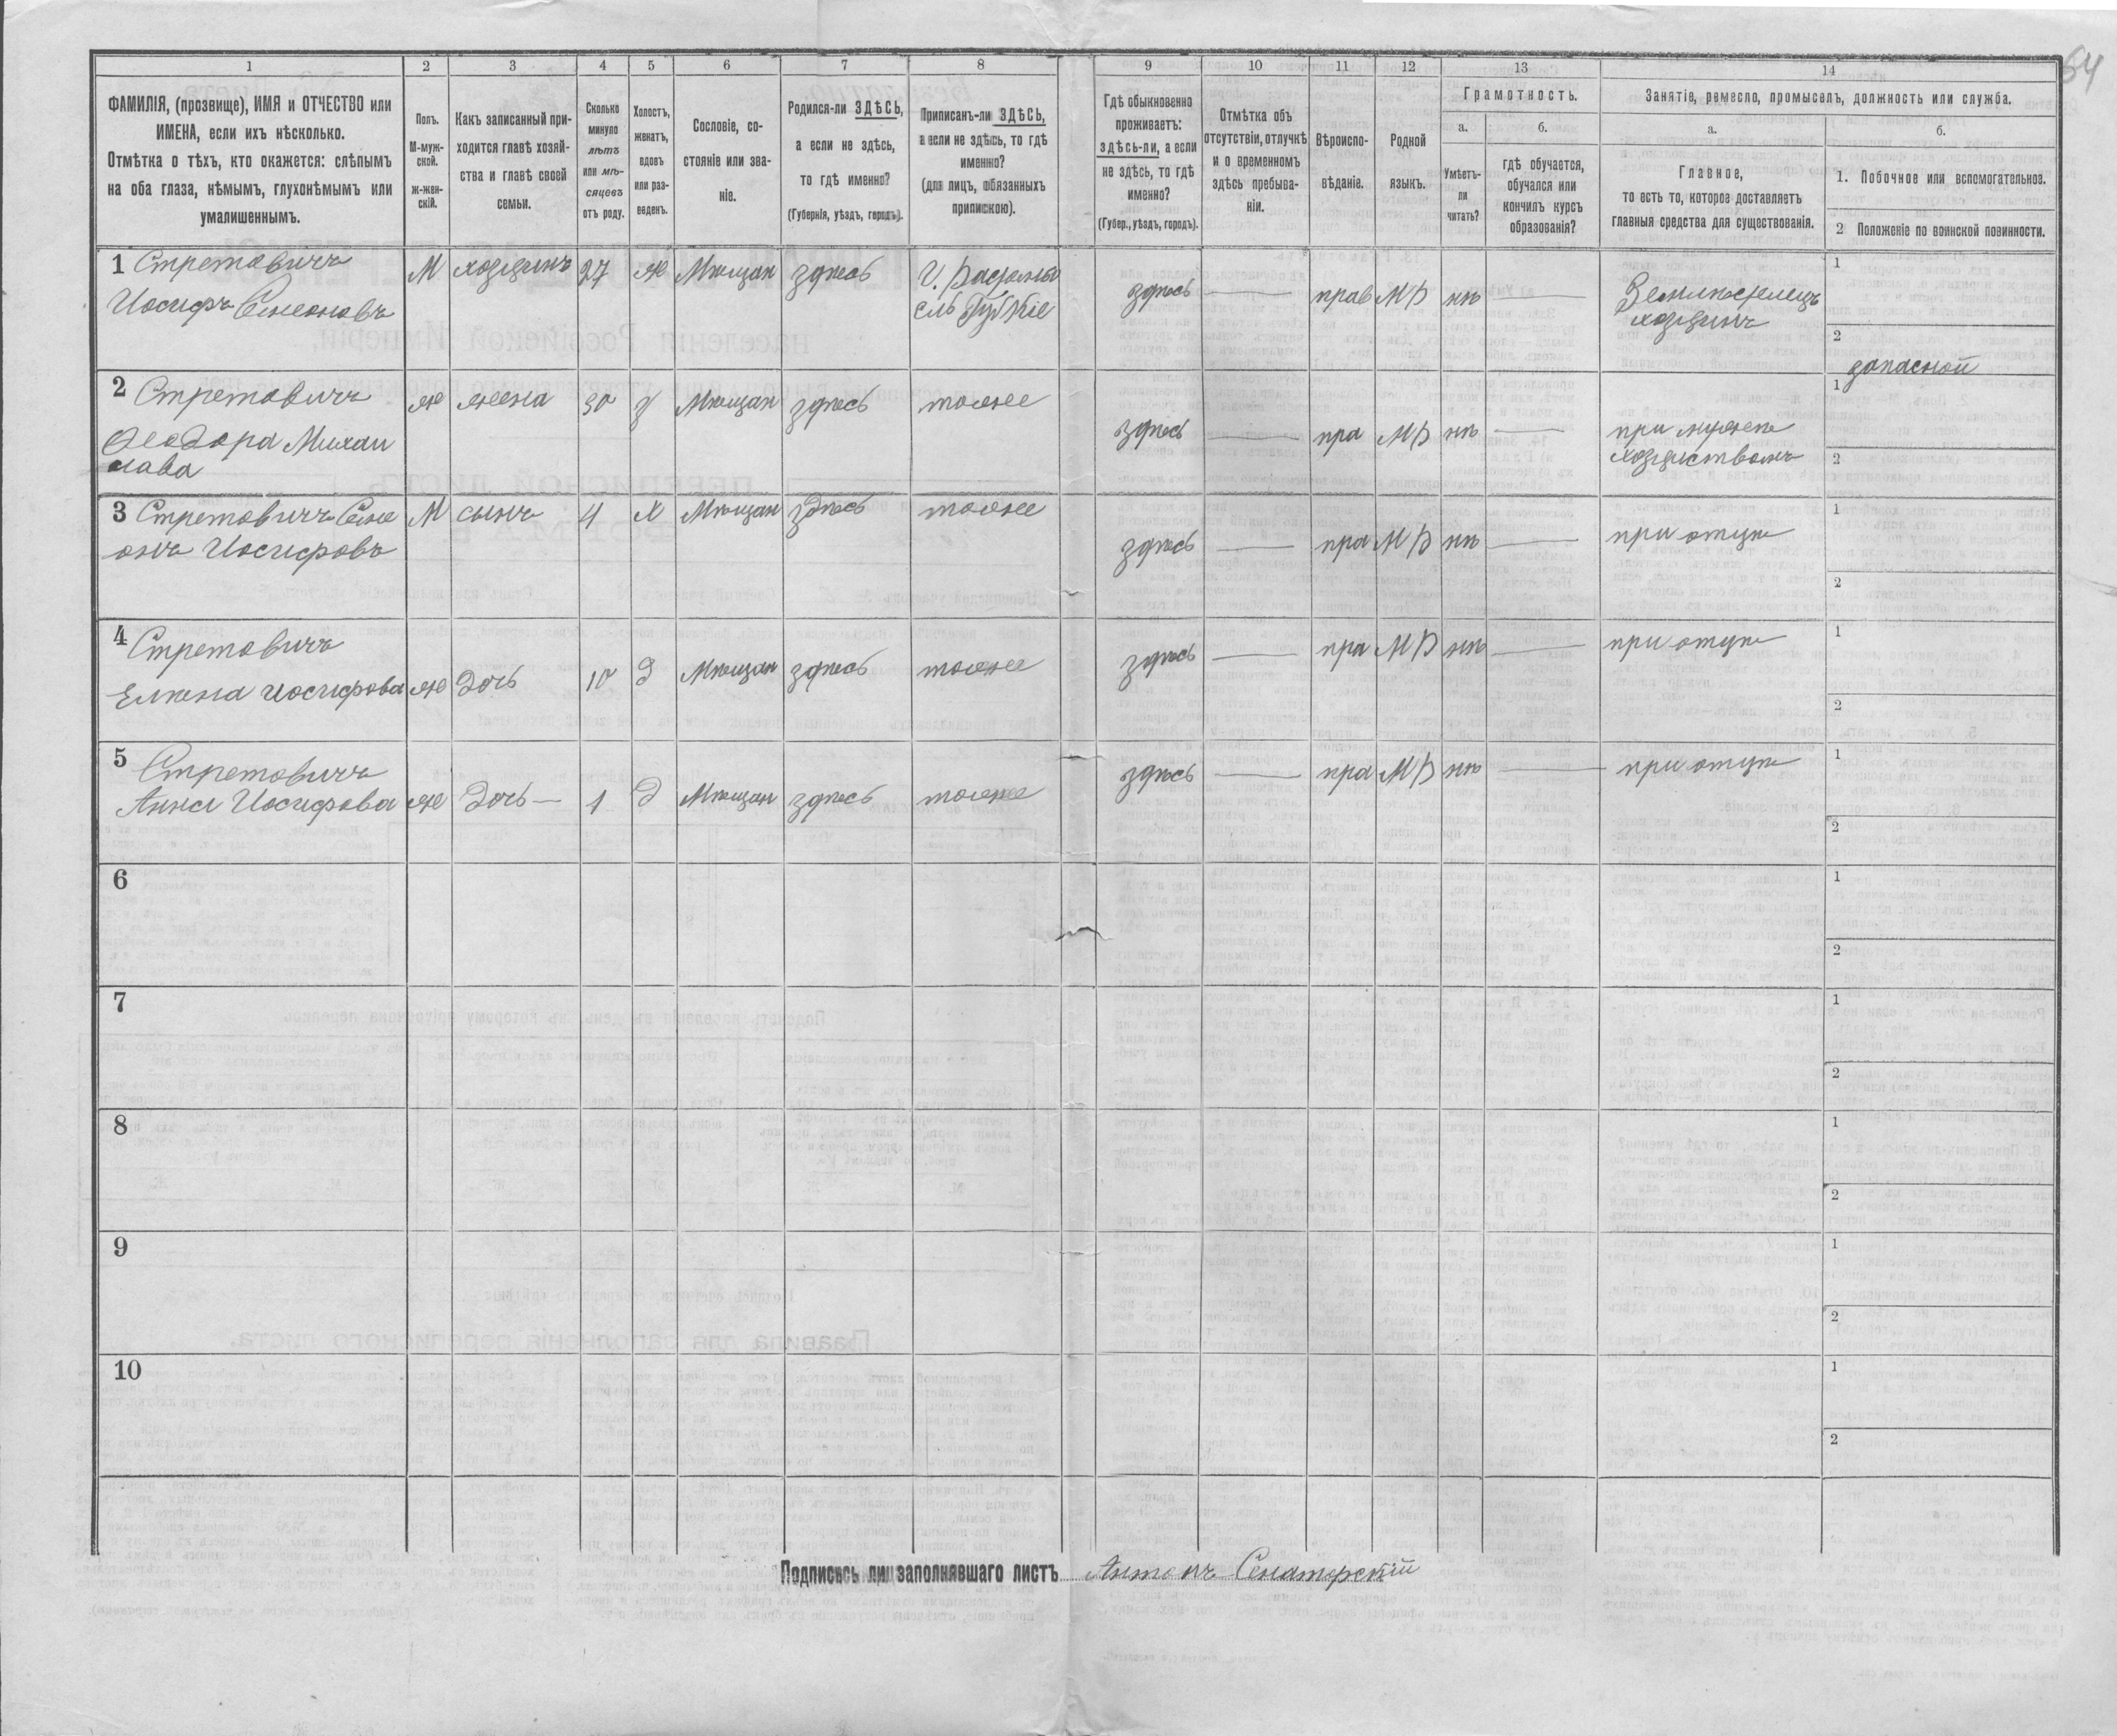 64
1 2 3 4 5 6 7 8 9 10 11 12 13 14
ФАМИЛІЯ, (прозвище), ИМЯ и ОТЧЕСТВО или
ИМЕНА, если ихъ нѣсколько.
Отмѣтка о тѣхъ, кто окажется: слѣпымъ
на оба глаза, нѣмымъ, глухонѣмымъ или
умалишеннымъ.
Полъ.
М-муж-
ской.
ж-жен-
скій.
Какъ записанный при-
ходится главѣ хозяй-
ства и главѣ своей
семьи.
Сколько
минуло
лѣтъ
или мѣ-
сяцевъ
отъ роду.
Холостъ,
женатъ,
вдовъ
или раз-
веденъ.
Сословіе, со-
стояніе или зва-
ніе.
Родился-ли ЗДѢСЬ,
а если не здѣсь,
то гдѣ именно?
(Губернія, уѣздъ, городъ).
Приписанъ-ли ЗДѢСЬ,
а если не здѣсь, то гдѣ
именно?
(для лицъ, обязанныхъ
припискою).
Гдѣ обыкновенно
проживаетъ:
здѣсь-ли, а если
не здѣсь, то гдѣ
именно?
(Губер., уѣздъ, городъ).
Отмѣтка объ
отсутствіи, отлучкѣ
и о временномъ
здѣсь пребыва-
ніи.
Вѣроиспо-
вѣданіе.
Родной
языкъ.
Грамотность.
а.
Умѣетъ-
ли
читать?
б.
гдѣ обучается,
обучался или
кончилъ курсъ
образованія?
Занятіе, ремесло, промыселъ, должность или служба.
а.
Главное,
то есть то, которое доставляетъ
главныя средства для существованія.
б.
1. Побочное или вспомогательное.
2 Положеніе по воинской повинности.
1 Стретовичъ
Иосифъ Семеоновъ
М хозяинъ 27 ж Мѣщан здѣсь
здѣсь — прав МР нѣ —
Землѣделецъ
хозяинъ
1
2
запасной
2 Стретовичъ
Феодора Михаи
лава
ж жена 30 з Мѣщан здѣсь тоже
здѣсь — пра МР нѣ —
при мужѣ
хозяиствомъ
1
2
3 Стретовичъ Семе
онъ Иосифовъ
М сынъ 4 Х Мѣщан здѣсь тоже
здѣсь — пра МР нѣ — при отцѣ
1
2
4 Стретовичъ
Елѣена Иосифова ж дочь 10 д Мѣщан здѣсь тоже
здѣсь — пра МР нѣ — при отцѣ
1
2
5 Стретовичъ
Анна Иосифова ж дочь — 1 д Мѣщан здѣсь тоже
здѣсь — пра МР нѣ — при отцѣ
1
2
6
1
2
7
1
2
8
1
2
9
1
2
10
1
2
Подпись лица заполнявшаго листъ Антонъ Сенаторскій